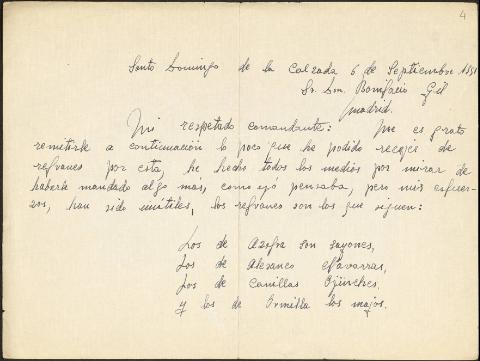 4
Santo Domingo de la Calzada 6 de Septiembre 1951
Sr. Dn. Bonifacio Gil
Madrid.
Mi respetado comandante: Me es grato
remitirle a continuación lo poco que he podido recojer de
refranes por esta, he hecho todos los medios por mirar de
haberle mandado algo mas, como yó pensaba, pero mis esfuer-
zos, han sido inútiles, los refranes son los que siguen:
Los de Azofra son sayones,
Los de Alesanco Navarros,
Los de Canillas
y los de Ormilla los majos.